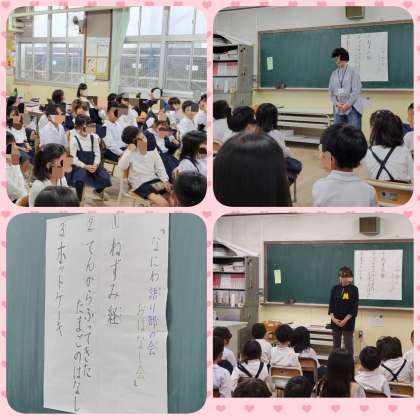 『なにわ語り部の会
おはなし会』
1 ねずみ経
2 てんからふってきた
たまごのはなし
3 ホットケーキ